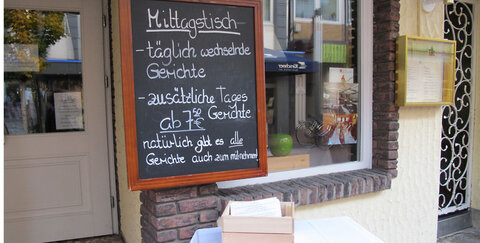 Mittagstisch
- täglich wechselnde
Gerichte
- zusätzliche Tages
Gerichte
ab 7,50 €
natürlich gibt es alle
Gerichte auch zum mitnehmen!